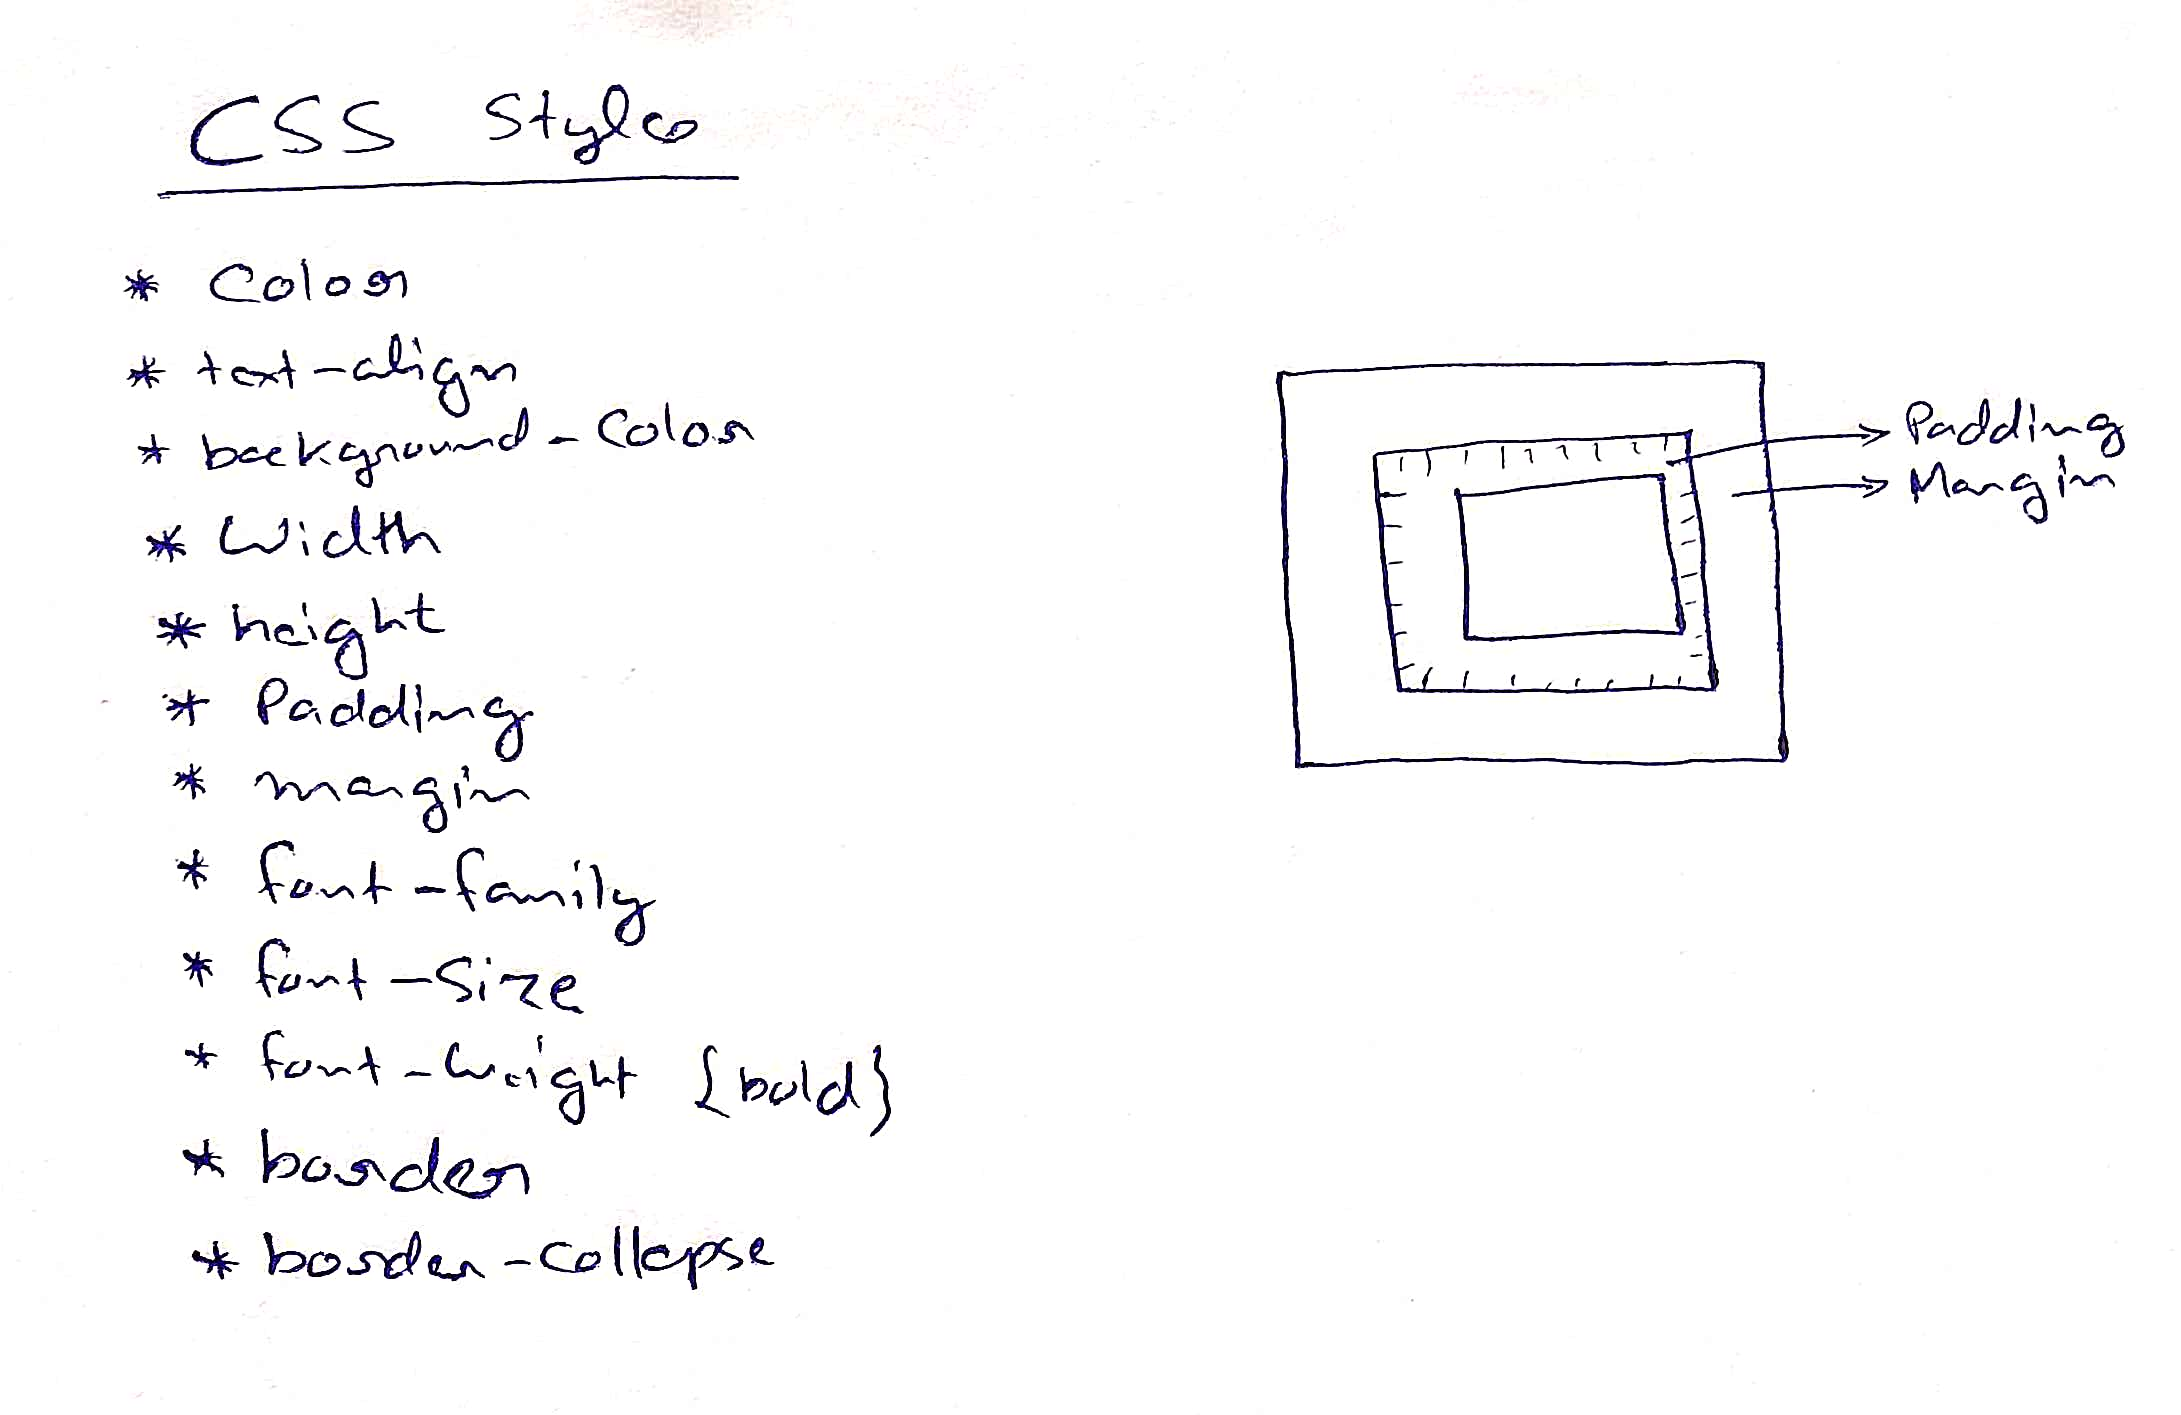 CSS Styles
* Color
* text-align
* background-Color
* Width
* height
* Padding
* margin
* font-family
* font-Size
* font-Weight {bold}
* border
* border-collapse
Padding
Margin